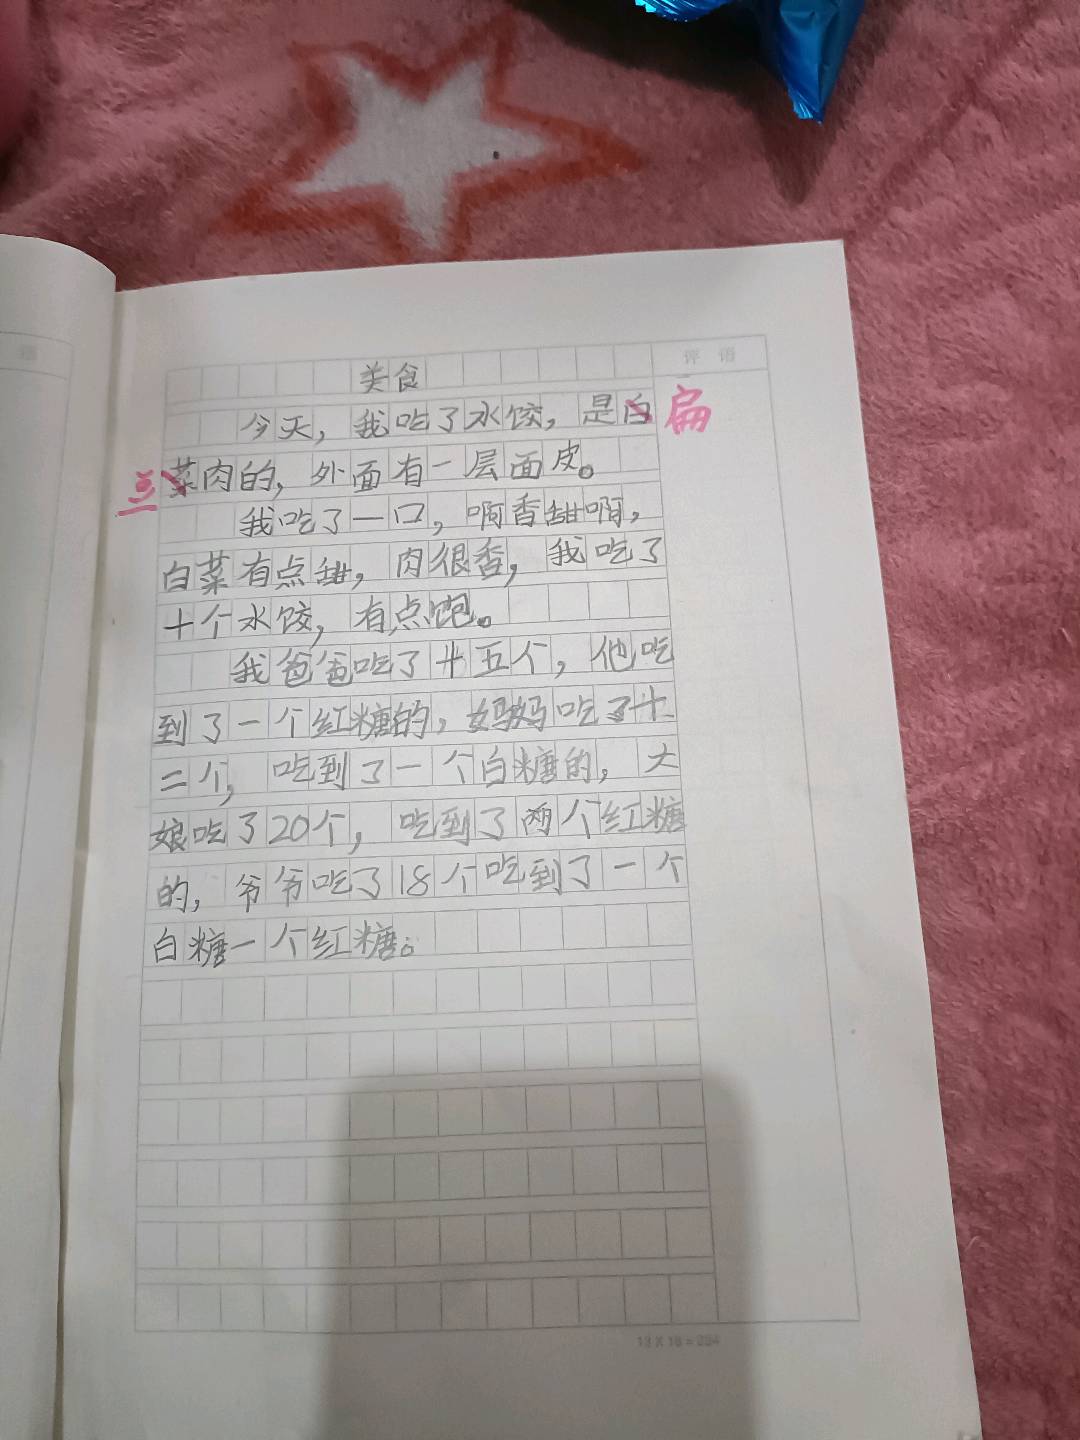 评 语
美食
今天，我吃了水饺，是白 扁
豆 菜肉的，外面有一层面皮。
我吃了一口，啊香甜啊，
白菜有点甜，肉很香，我吃了
十个水饺，有点饱。
我爸爸吃了十五个，他吃
到了一个红糖的，妈妈吃了十
二个，吃到了一个白糖的，大
娘吃了20个，吃到了两个红糖
的，爷爷吃了18个吃到了一个
白糖一个红糖。